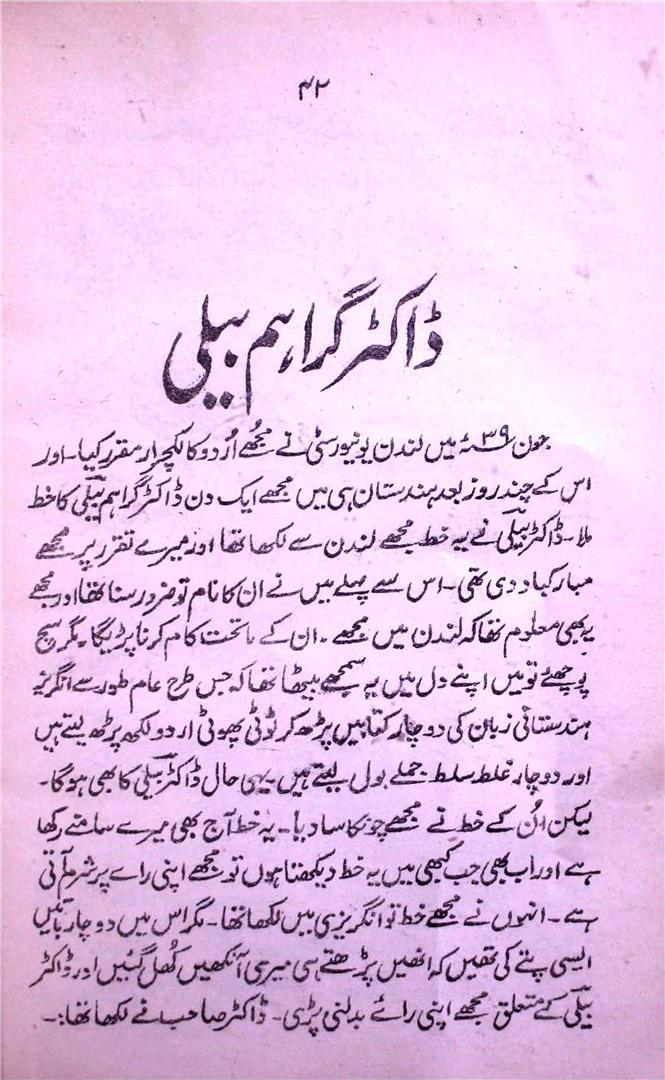 ۴۲
ڈاکٹر گراہم بیلی
جون ۳۹ء میں لندن یونیورسٹی نے مجھے اُردو کا لکچرار مقرر کیا۔ اور
اس کے چند روز بعد ہندستان ہی میں مجھے ایک دن ڈاکٹر گراہم بیلی کا خط
ملا۔ ڈاکٹر بیلی نے یہ خط مجھے لندن سے لکھا تھا اور میرے تقرر پر مجھے
مبارکباد دی تھی۔ اس سے پہلے میں نے ان کا نام تو ضرور سنا تھا اور مجھے
یہ بھی معلوم تھا کہ لندن میں مجھے ۔ ان کے ماتحت کام کرنا پڑیگا۔ مگر سچ
پوچھئے تو میں اپنے دل میں یہ سمجھے بیٹھا تھا کہ جس طرح عام طور سے انگریز
ہندستانی زبان کی دو چار کتابیں پڑھ کر ٹوٹی پھوٹی اردو لکھ پڑھ لیتے ہیں
اور دو چار غلط سلط جملے بول لیتے ہیں۔ یہی حال ڈاکٹر بیلی کا بھی ہوگا۔
لیکن اُن کے خط نے مجھے چونکا سا دیا۔ یہ خط آج بھی میرے سامنے رکھا
ہے اور اب بھی جب کبھی میں یہ خط دیکھتا ہوں تو مجھے اپنی رائے پر شرم آتی
ہے۔ انہوں نے مجھے خط تو انگریزی میں لکھا تھا۔ مگر اس میں دو چار باتیں
ایسی پتے کی تھیں کہ انھیں پڑھتے ہی میری آنکھیں کُھل گئیں اور ڈاکٹر
بیلی کے متعلق مجھے اپنی رائے بدلنی پڑی۔ ڈاکٹر صاحب نے لکھا تھا:۔